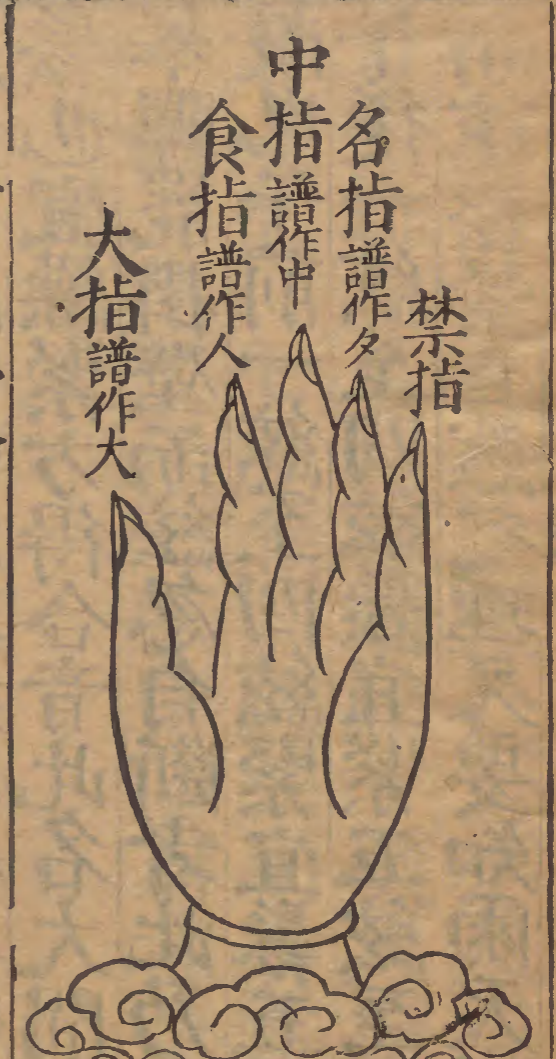 禁指
名指譜作夕
中指譜作中
食指譜作人
大指譜作大